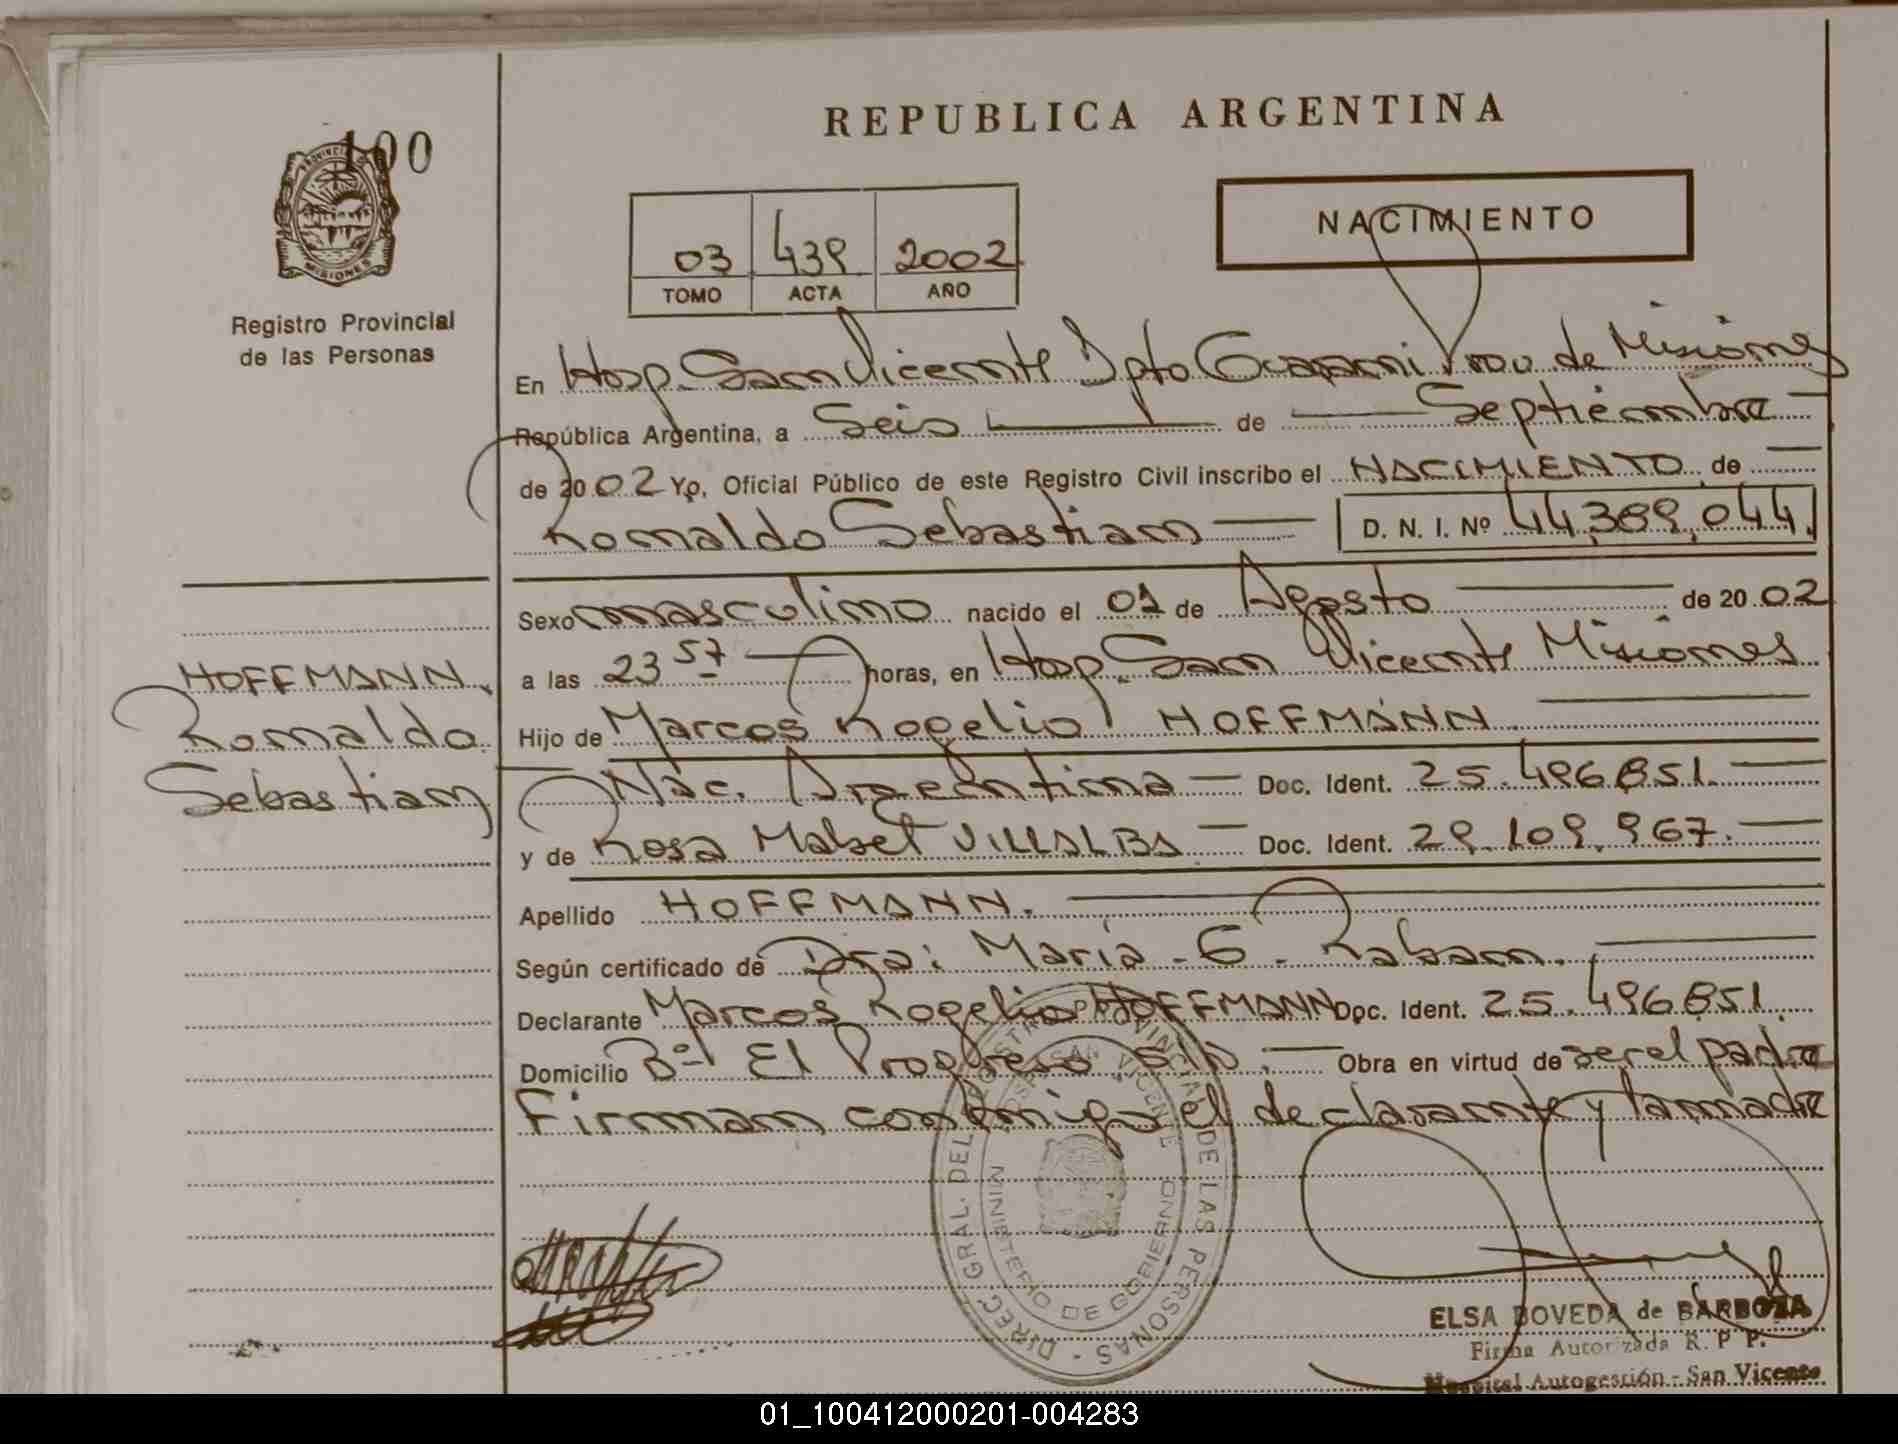 100
PROVINCIA DE
MISIONES
Registro Provincial
de las Personas
REPUBLICA ARGENTINA
NACIMIENTO
03 439 2002
TOMO ACTA AÑO
En Hosp. San Vicente Dpto Guarani Prov. de Misiones
República Argentina, a Seis de Septiembre
de 2002 Yo, Oficial Público de este Registro Civil inscribo el NACIMIENTO de
Romaldo Sebastian D. N. I. Nº 44.389.044
Sexo masculino nacido el 01 de Agosto de 2002
a las 23 57 horas, en Hosp. San Vicente Misiones
Hijo de Marcos Rogelio HOFFMANN
Nac. Argentina Doc. Ident. 25.496.851.
y de Rosa Mabel VILLALBA Doc. Ident. 29.109.967.
Apellido HOFFMANN.
Según certificado de Dra: María E. Raban.
Declarante Marcos Rogelio HOFFMANN Doc. Ident. 25.496.851.
Domicilio Bº El Progreso S/N. Obra en virtud de ser el padre
Firman conmigo el declarante y la madre
HOFFMANN.
Romaldo
Sebastian
DIREC. GRAL. DEL REGISTRO PROVINCIAL DE LAS PERSONAS
HOSP. SAN VICENTE
MINISTERIO DE GOBIERNO
ELSA BOVEDA de BARBOZA
Firma Autorizada R. P. P.
Hospital Autogestión - San Vicente
01_100412000201-004283